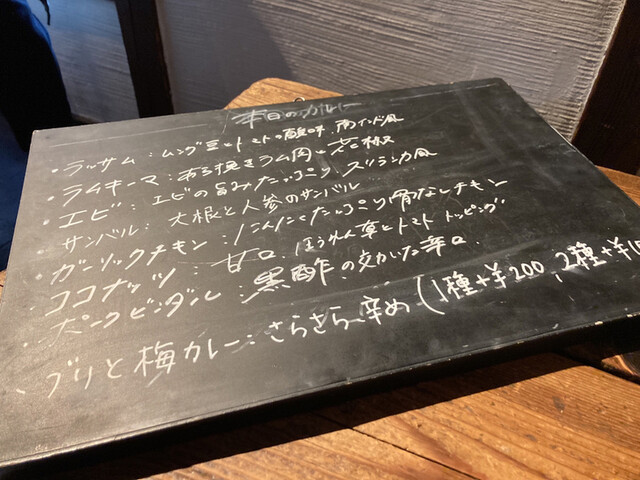 本日のカレー
・ラッサム：ムング豆とトマトの酸味.南インド風
・ラムキーマ：あら挽きラム肉と花椒
・エビ：エビの旨みたっぷり、スリランカ風
・サンバル：大根と人参のサンバル
・ガーリックチキン：にんにくたっぷり骨なしチキン
・ココナッツ：甘口.ほうれん草とトマトトッピング
・ポークビンダル：黒酢の効いた辛口.
・ブリと梅カレー：さらさら、辛め(1種+¥200、2種+¥1